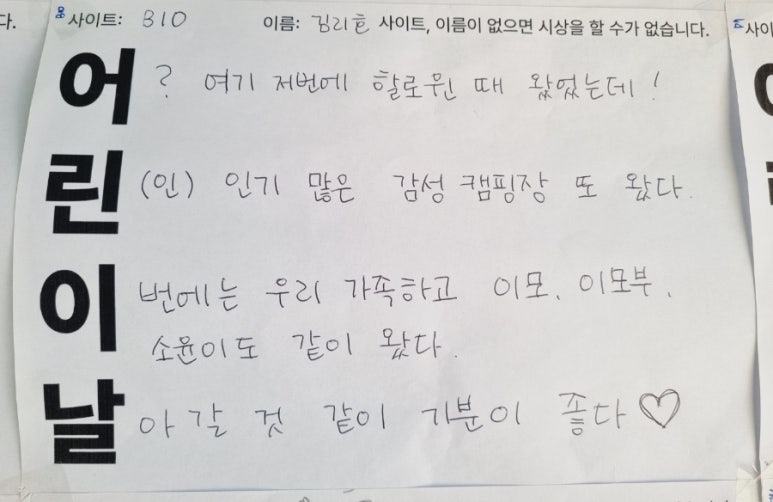 다.
사이트: B10 이름: 김리호 사이트, 이름이 없으면 시상을 할 수가 없습니다.
사이
어 ? 여기 저번에 할로윈 때 왔었는데!
린 (인) 인기 많은 감성 캠핑장 또 왔다.
이 번에는 우리 가족하고 이모, 이모부,
소윤이도 같이 왔다.
날 아갈 것 같이 기분이 좋다♡